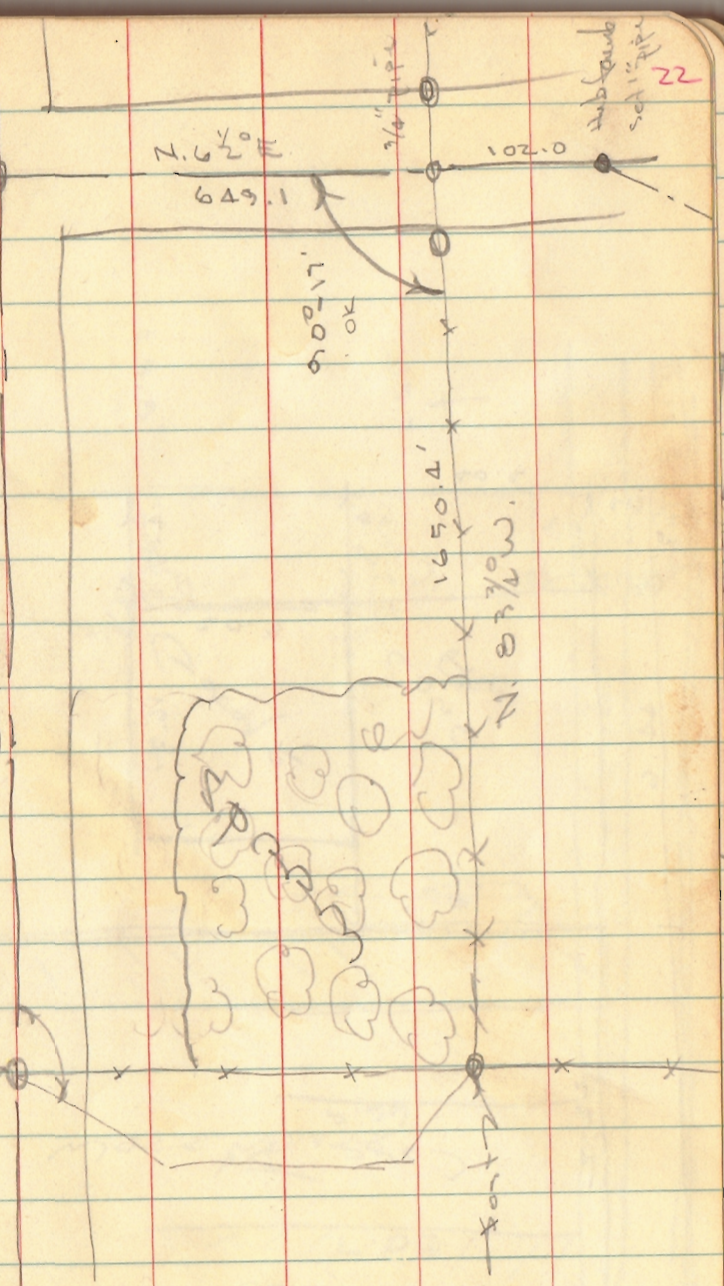 22
Hub found
set 1" pipe
3/4" pipe
102.0
N. 6 1/2° E
649.1
90°-17'
OK
1650.4'
N. 83 3/4° W.